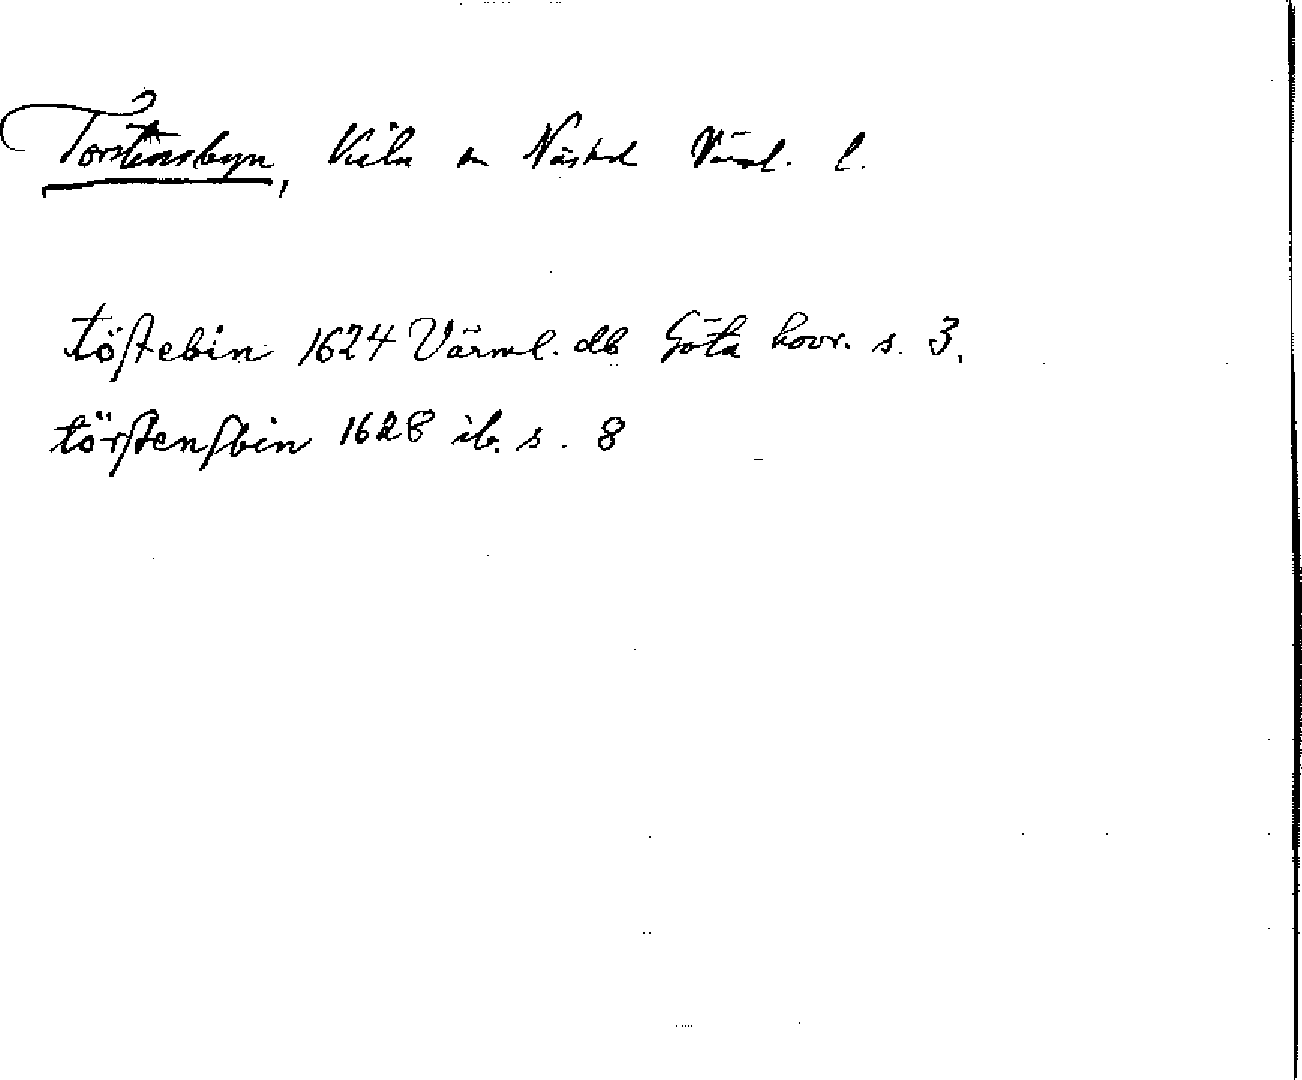 Torstensbyn, Kila sn Näshd Värml. l.
töstebin 1624 Värml. db Göta hovr. s. 3.
törstensbin 1628 ib. s. 8